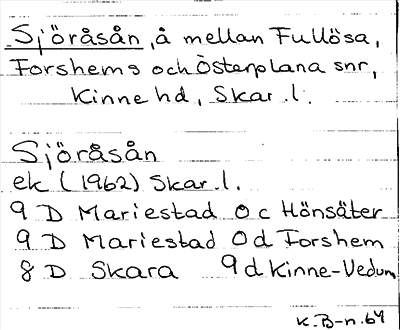 Sjöråsån, å mellan Fullösa,
Forshems och Österplana snr,
Kinne hd, Skar. l.
Sjöråsån
ek (1962) Skar. l.
9 D Mariestad 0 c Hönsäter
9 D Mariestad 0 d Forshem
8 D Skara 9 d Kinne-Vedum
K. B-n. 64